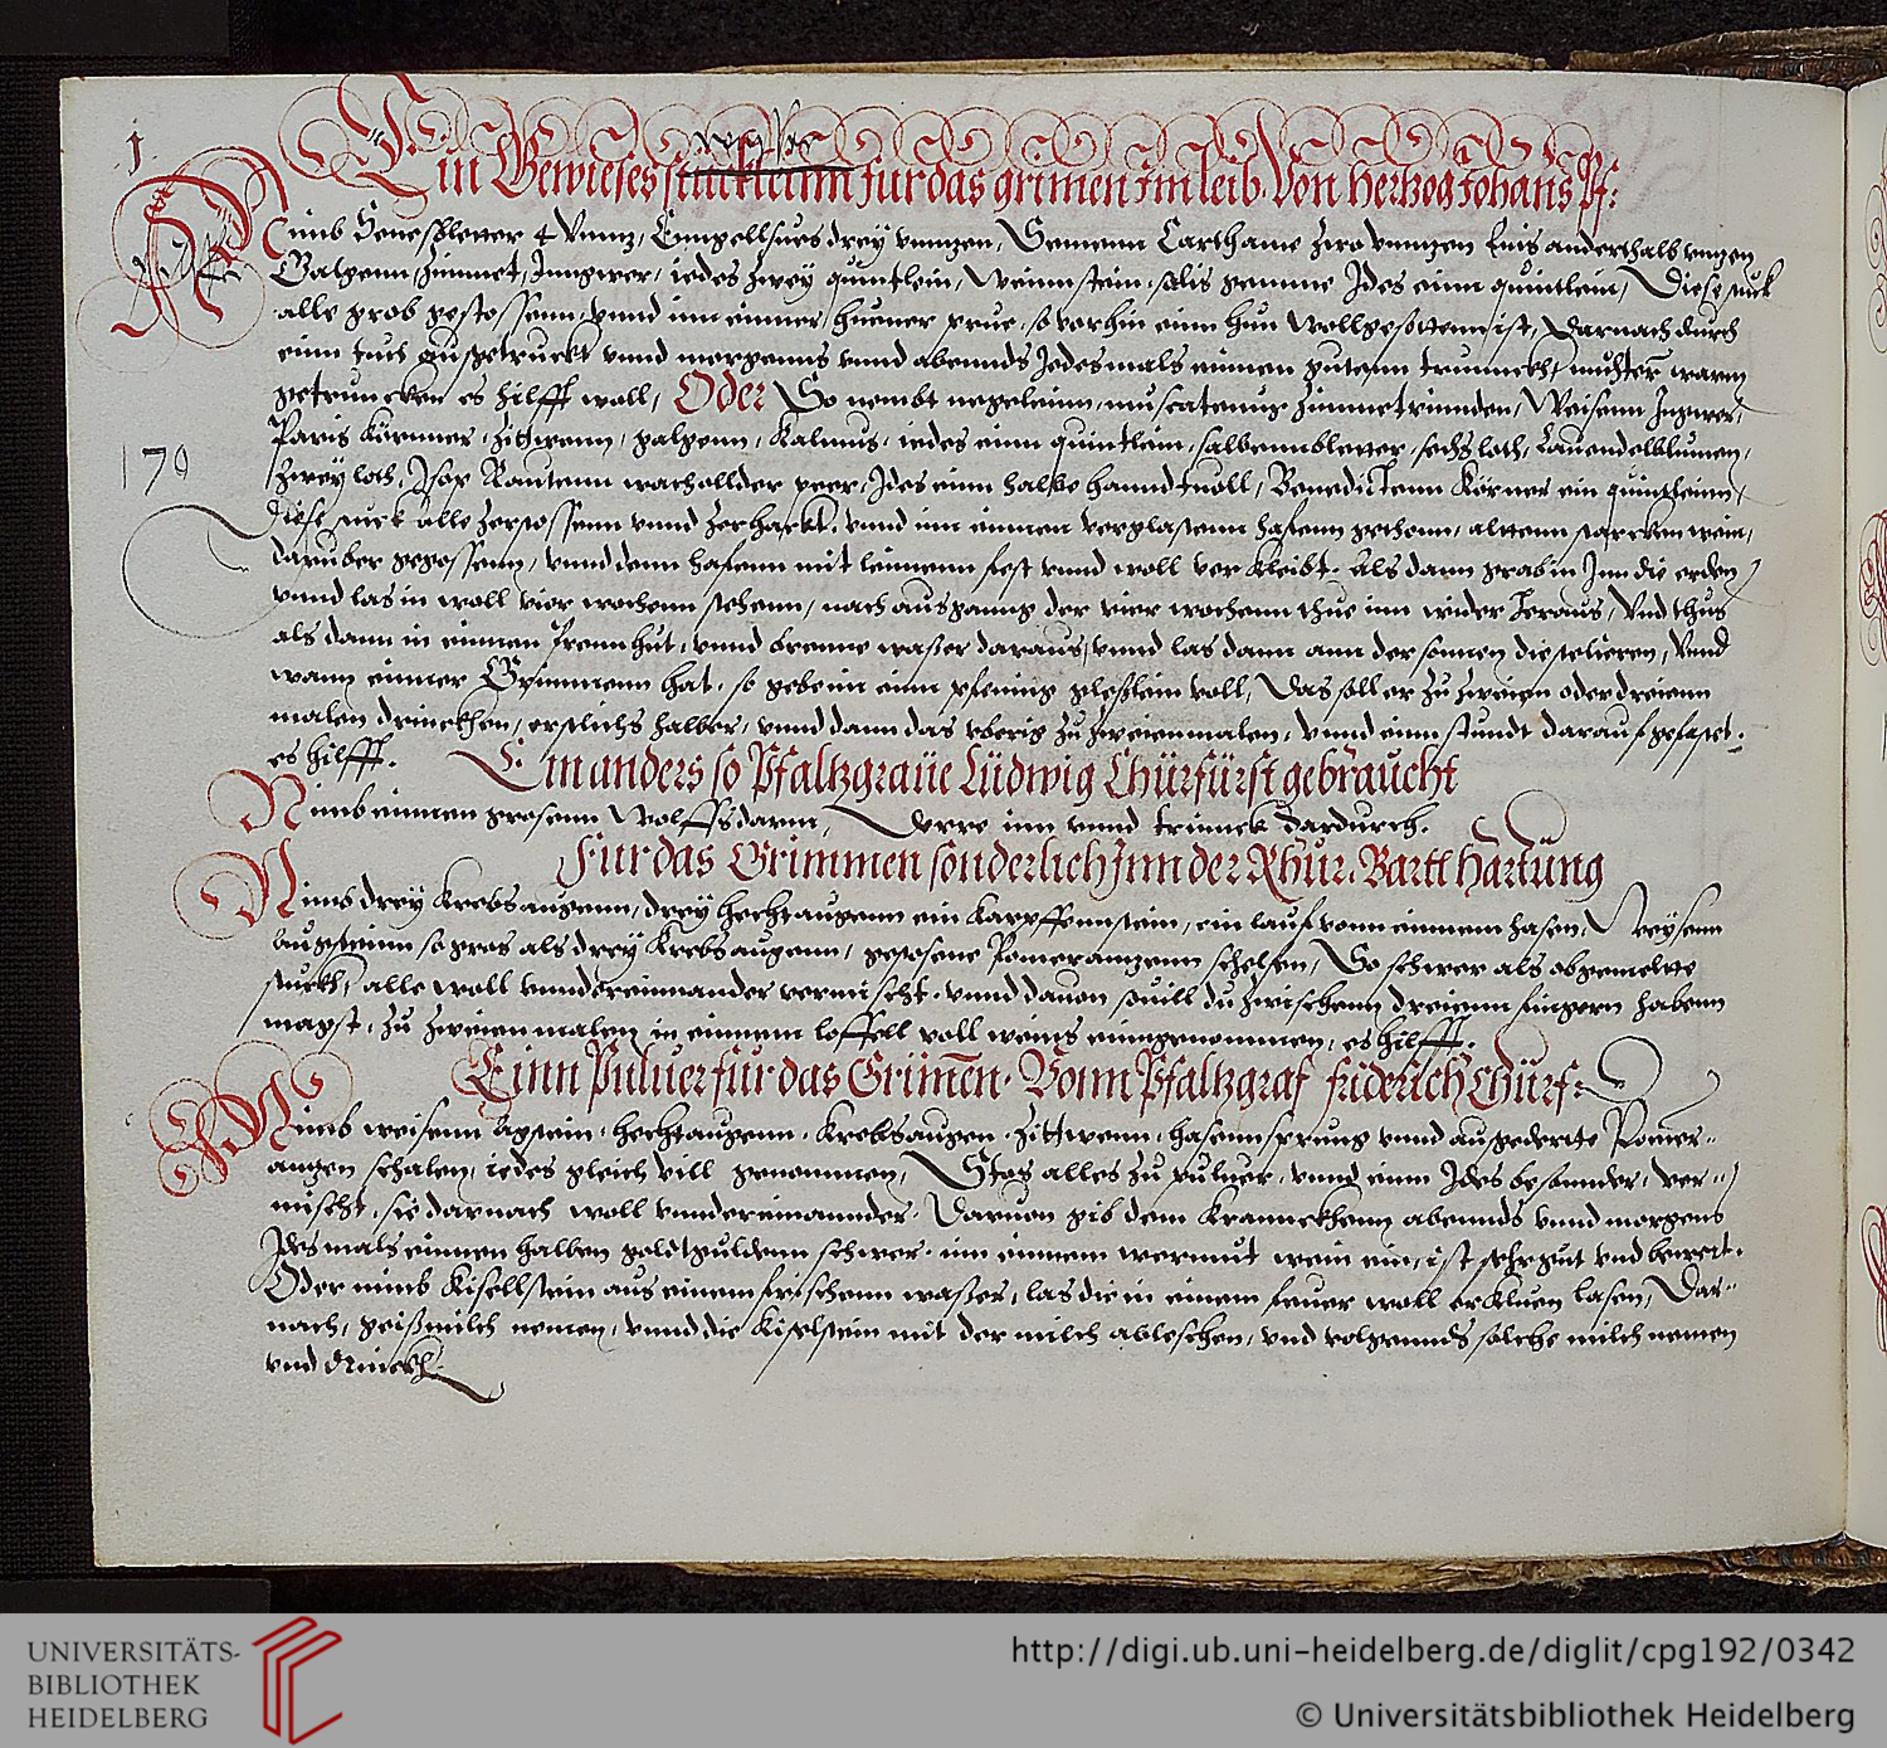 j.
Ein Gewieses stucklinn fur das grimen Im leib. Von Hertzog Johans Pf:
Nimb Senesbletter 4 Vnnz, Enngellsues drey vnnzen, Semenn Carthame zwo vnnzen Enis anderthalb vnzen
Galgenn, Zimmet, Inngwer, iedes zwey quintlein, Weinnstein, salis gemme Ides einn quintlein, Diese stuck
alle grob gestossenn, vnnd inn einner huener prue, so vorhin einn hun Wollgesottenn ist, Darnach durch
einn tuch ausgetruckt vnnd morgenns vnnd abennds Jedesmals einnen gutenn trunnckh, nuchter warm
getruncken es hilfft woll, Oder So nembt negeleinn, muscatenus Zimmetrinnden, Weisenn Ingwer,
Paris körnner, Zittwenn, galgenn, Kalmus, iedes einn quintlein, salbennbletter, sechs loth, Lauendelblumen,
170
zwey loth, Isop Rautenn wachollder peer, Ides einn halbe hannd fuoll, Benedictenn Körner ein quintleinn,
Diese stuck alle zerstossenn vnnd zerhackt, vnnd inn einnen verglastenn hafenn gethonn, altenn starcken wein,
daruber gegossenn, vnnd denn hafenn mit leimenn fest vnnd woll verkleibt. Als dann grab in Inn die erden
vnnd las in woll vier wochenn stehenn, nach ausganng der vier wochenn thue inn wider heraus, Vnd thus
als dann in einnen prennhut, vnnd brenne waser daraus, vnnd las dann ann der sonnen distelieren, Vnnd
wann einner Grimmenn hat, so gebe im einn pfening gleßlein voll, Das soll er zu zweien oder dreienn
malen drinckhen, erstlichs halber, vnnd dann das vberig zu zweienmalen, vnnd einn stundt darauf gefastet.
es hilfft.
Ein anders so Pfaltzgraue Ludwig Churfurst gebraucht
Nimb einnen grosenn Wolffsdarm, Derre inn vnnd trinnck dardurch.
Fur das Grimmen sonderlich Inn der Rhur. Bartl Hartung
Nimb drey Krebsaugenn, drey hechtaugenn ein Karpffennstein, ein lauf vonn einnem hasen, Weysenn
Augsteinn so gros als drey Krebsaugenn, gestosene Pomeranzenn schelfen, So schwer als obgemelte
stuckh, alle woll vnndereinnander vermischt, vnnd dauon souill du zwischenn dreienn fingern habenn
magst, zu zweien malen in einnem loffell voll weins einngenommen, es hilfft.
Einn Puluer fur das Grimen. Vonn Pfaltzgraf friderich Churf:
Nimb weisenn Agstein, hechtaugenn, Krebsaugen, Zittwenn, hasennsprung vnnd ausgederrte Pomer-
anzen schalen, iedes gleich vill genommen, Stos alles zu puluer, vnnd einn Ides besonnder, ver-
mischt, sie darnach woll vnndereinannder. Daruon gib dem Kranneckhenn abennds vnnd morgens
Idesmals einnen halben goldtguldenn schwer, inn einnem wermut wein ein, ist sehr gut vnd bewert.
Oder nimb Kisellstein aus einem frischenn waser, las die in einem feuer woll erkluen lasen, Dar-
nach, geißmilch nemen, vnnd die Kiselstein mit der milch ableschen, vnd volgennds solche milch nemen
vnd drinckh.
UNIVERSITÄTS-
BIBLIOTHEK
HEIDELBERG
http://digi.ub.uni-heidelberg.de/diglit/cpg192/0342
© Universitätsbibliothek Heidelberg